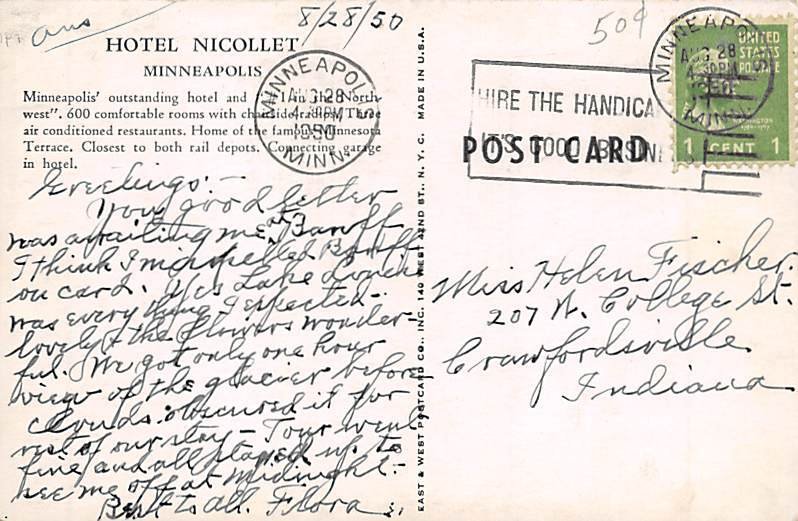 ans
8/28/50
50¢
HOTEL NICOLLET
MINNEAPOLIS
Minneapolis' outstanding hotel and in the North-
west". 600 comfortable rooms with Three
air conditioned restaurants. Home of the famous Minnesota
Terrace. Closest to both rail depots. Connecting garage
in hotel.
MINNEAPOLIS
AUG 28
4 30 PM
1950
MINN.
MADE IN U.S.A.
EAST & WEST POSTCARD CO., INC. 140 WEST 42ND ST., N. Y. C.
HIRE THE HANDICA
IT'S GOOD BUSINESS
POST CARD
MINNEAPOLIS
AUG 28
4 30 PM
1950
MINN.
UNITED
STATES
POSTAGE
WASHINGTON
1 CENT 1
Greetings:-
Your good letter
was awaiting me at Banff
I think I misspelled Banff
on card. Yes Lake Louise
was every thing I expected-
lovely & the flowers wonder-
ful. We got only one hour
view of the glacier before
clouds obscured it for
rest of our stay - Tour went
fine and all stayed up to
see me off at midnight.-
Best to all. Flora
Miss Helen Fischer.
207 N. College St.
Crawfordsville
Indiana